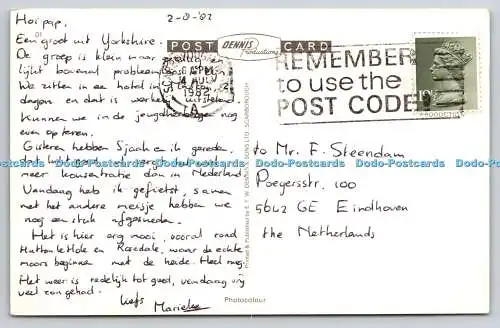 2-8-'82
Hoi pap,
Een groet uit Yorkshire.
De groep is klein maar gezellig en
lijkt bovenal probleemloos
We zitten in een hotel in
dagen en dat is werkelijk uitstekend.
Kunnen we in de jeugdherberge nog
even op teren.
Gisteren hebben Sjaak en ik gereden.
meer konsentratie dan in Nederland.
Vandaag heb ik gefietst, samen
met het andere meisje hebben we
nog een stuk afgesneden.
Het is hier erg mooi, vooral rond
Hutton le Hole en Rosedale, waar de echte
moors beginnen met de heide. Heel rustig.
Het weer is redelijk tot goed, vandaag vrij
veel zon gehad.
liefs
Marieke
POST CARD
DENNIS
Productions
6 PM
4 AUG
1982
REMEMBER
to use the
POST CODE
to Mr. F. Steendam
Poeyersstr. 100
5642 GE Eindhoven
the Netherlands
Printed & Published by E. T. W. DENNIS & SONS LTD., SCARBOROUGH
Photocolour
Dodo-Postcards Dodo-Postcards Dodo-Postcards Dodo-Postcards Dodo-Postcards Dodo-Postcards